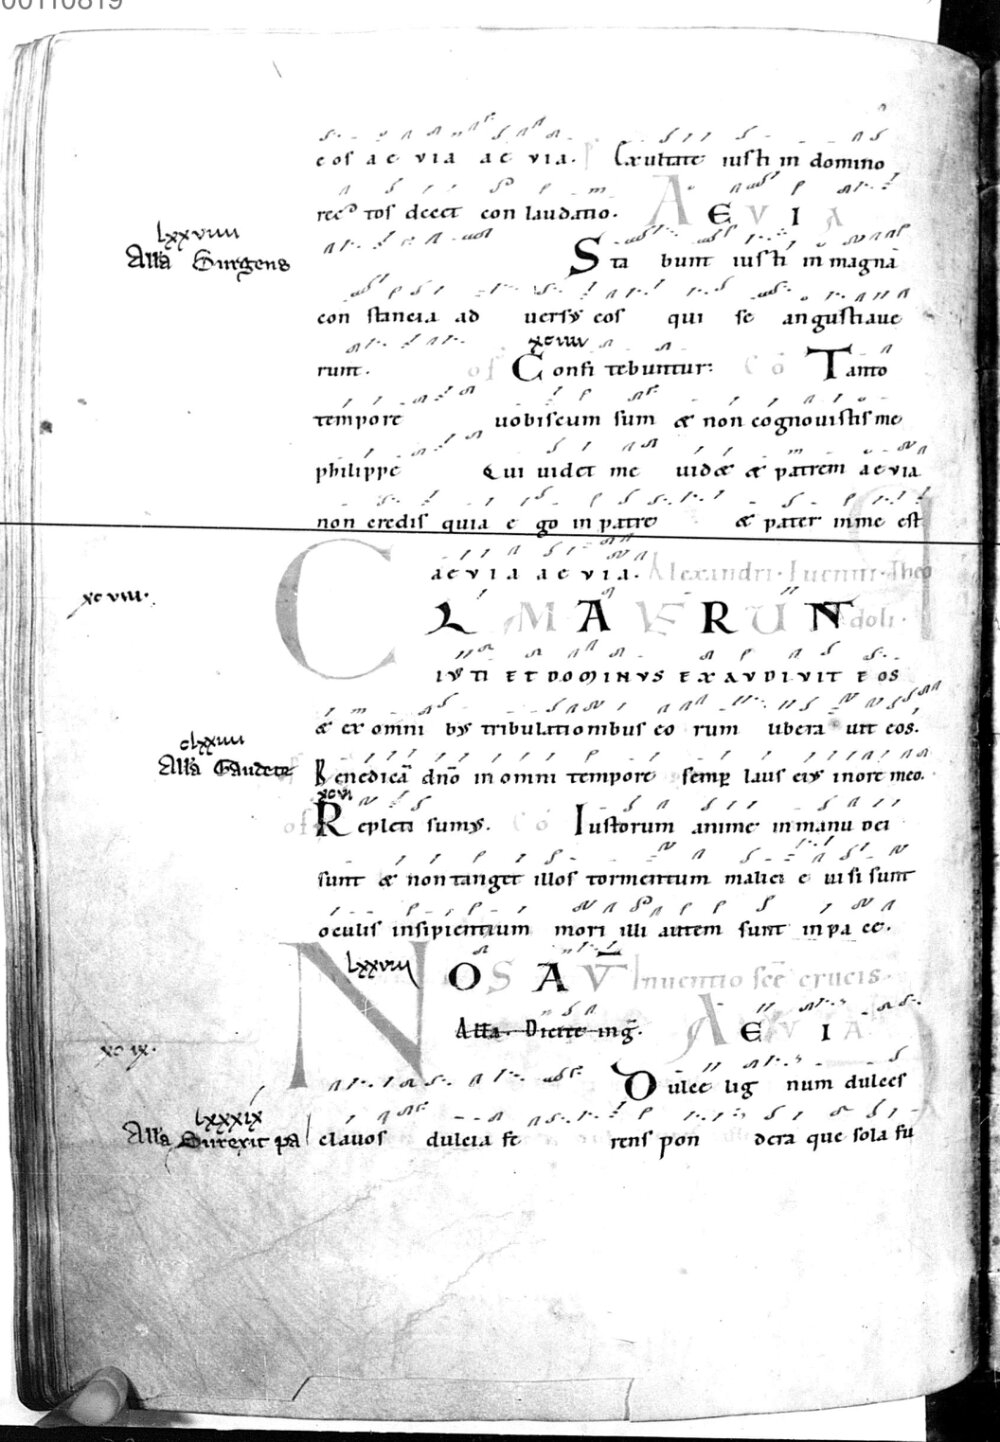 00110819
eos ae via ae via. Exultate iusti in domino
rec tos decet con laudatio. AEVIA
lxxviiii
Alla Surgens
Sta bunt iusti in magnā
con stancia ad uersꝰ eos qui se angustiaue
runt. of xciiii Confi tebuntur: Co Tanto
tempore uobiscum sum & non cognouistis me
philippe Qui uidet me uid& & patrem aevia
non credis quia e go in patre & pater in me est
aevia aevia. Alexandri. Iuenni. Theo
xcviii.
CLAMAVERUNT doli.
IUSTI ET DOMINUS EXAUDIVIT EOS
& ex omni bꝰ tribulationibus eo rum libera uit eos.
clxxiiii
Alla Gaudete
Benedicā dño in omni tempore semꝑ laus eiꝰ in ore meo.
xcvi
of Repleti sumꝰ. Co Iustorum anime in manu dei
sunt & non tanget illos tormentum malici e uisi sunt
oculis insipientium mori illi autem sunt in pa ce.
lxxviii
NOS AUT Inuentio scē crucis.
Alla. Dicite in g. AEVIA
xcix.
Dulce lig num dulces
lxxxix
Alla Surexit pa clauos dulcia fe rens pon dera que sola fu